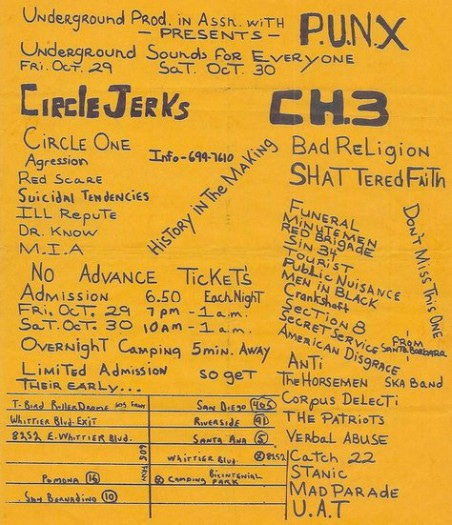 Underground Prod. in Assn. with
— PRESENTS —
P.U.N.X
Underground Sounds for Everyone
Fri. Oct. 29 Sat. Oct. 30
Circle Jerks
CH.3
Circle One
Agression
Red Scare
Suicidal Tendencies
Ill Repute
Dr. Know
M.I.A
Info-699-7610
History In The Making
Bad Religion
Shattered Faith
Funeral
Minutemen
Red Brigade
Sin 34
Tourist
Public Nuisance
Men in Black
Crankshaft
Section 8
Secret Service
American Disgrace
From Santa Barbara
Don't Miss This One
Anti
The Horsemen Ska Band
Corpus Delecti
The Patriots
Verbal Abuse
Catch 22
Stanic
Mad Parade
U.A.T
No Advance Tickets
Admission 6.50 Each Night
Fri. Oct. 29 7pm - 1a.m.
Sat. Oct. 30 10am - 1a.m.
Overnight Camping 5min. Away
Limited Admission so get
Their early...
T-Bird RollerDrome
Whittier Blvd. Exit
8252 E. Whittier Blvd.
605 FRWY
Pomona
San Bernadino 10
San Diego 405
Riverside 91
Santa Ana 5
Whittier Blvd. 8252
Bicentenial
Camping Park